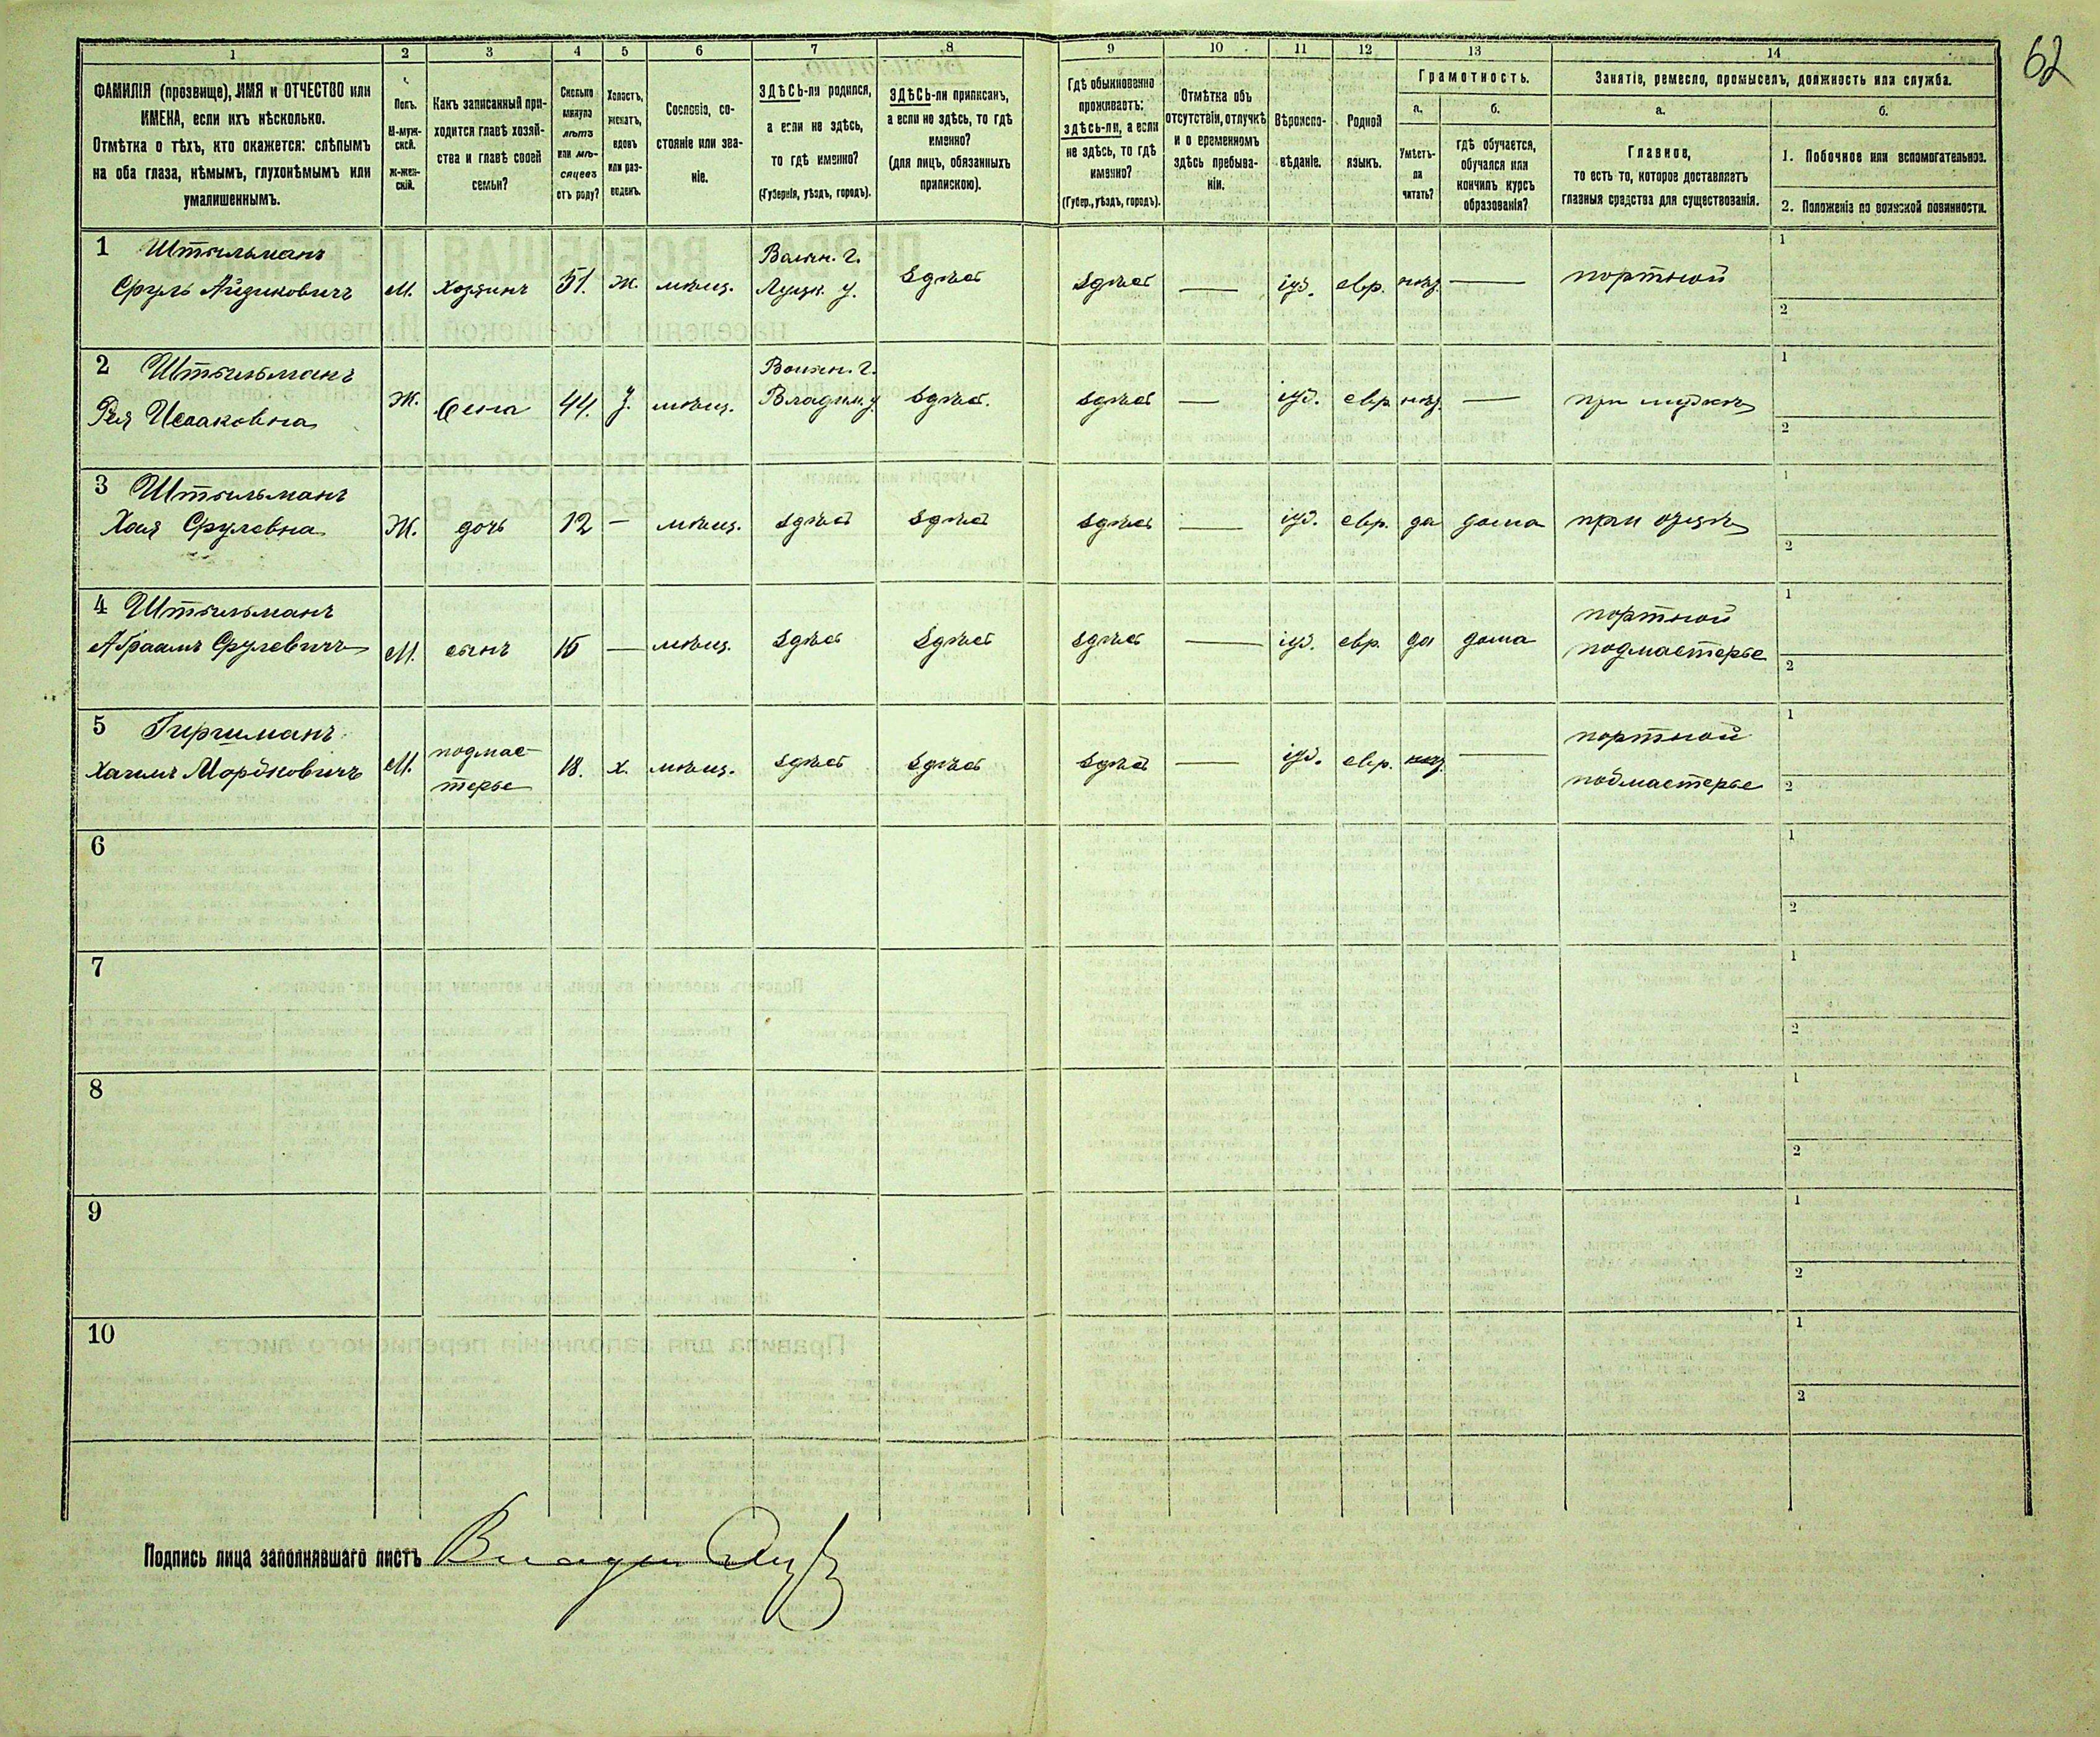 62
1 2 3 4 5 6 7 8 9 10 11 12 13 14
ФАМИЛІЯ (прозвище), ИМЯ и ОТЧЕСТВО или
ИМЕНА, если ихъ нѣсколько.
Отмѣтка о тѣхъ, кто окажется: слѣпымъ
на оба глаза, нѣмымъ, глухонѣмымъ или
умалишеннымъ.
Полъ.
М-муж-
ской.
Ж-жен-
скій.
Какъ записанный при-
ходится главѣ хозяй-
ства и главѣ своей
семьи?
Сколько
минуло
лѣтъ
или мѣ-
сяцевъ
отъ роду?
Холостъ,
женатъ,
вдовъ
или раз-
веденъ.
Сословіе, со-
стояніе или зва-
ніе.
ЗДѢСЬ-ли родился,
а если не здѣсь,
то гдѣ именно?
(Губернія, уѣздъ, городъ).
ЗДѢСЬ-ли приписанъ,
а если не здѣсь, то гдѣ
именно?
(для лицъ, обязанныхъ
припискою).
Гдѣ обыкновенно
проживаетъ:
здѣсь-ли, а если
не здѣсь, то гдѣ
именно?
(Губер., уѣздъ, городъ).
Отмѣтка объ
отсутствіи, отлучкѣ
и о временномъ
здѣсь пребыва-
ніи.
Вѣроиспо-
вѣданіе.
Родной
языкъ.
Грамотность.
а.
Умѣетъ-
ли
читать?
б.
гдѣ обучается,
обучался или
кончилъ курсъ
образованія?
Занятіе, ремесло, промыселъ, должность или служба.
а.
Главное,
то есть то, которое доставляетъ
главныя средства для существованія.
б.
1. Побочное или вспомогательное.
2. Положеніе по воинской повинности.
1 Штильманъ
Сруль Айзиковичъ
М.
Хозяинъ
51.
ж.
мѣщ.
Волын. г.
Луцк. у.
здѣсь
здѣсь
—
іуд.
евр.
нѣт
—
портной
1
2
2 Штильманъ
Рея Исааковна
Ж.
жена
44.
з.
мѣщ.
Волын. г.
Владим. у.
здѣсь.
здѣсь
—
іуд.
евр.
нѣт
—
при мужѣ
1
2
3 Штильманъ
Хая Срулевна
Ж.
дочь
12
—
мѣщ.
здѣсь
здѣсь
здѣсь
—
іуд.
евр.
да
дома
при отцѣ
1
2
4 Штильманъ
Абрамъ Срулевичъ
М.
сынъ
16
—
мѣщ.
здѣсь
здѣсь
здѣсь
—
іуд.
евр.
да
дома
портной
подмастерье
1
2
5 Гиршманъ
Хаимъ Мордковичъ
М.
подмас-
терье
18.
х.
мѣщ.
здѣсь
здѣсь
здѣсь
—
іуд.
евр.
нѣт
—
портной
подмастерье
1
2
6
1
2
7
1
2
8
1
2
9
1
2
10
1
2
Подпись лица заполнявшаго листъ